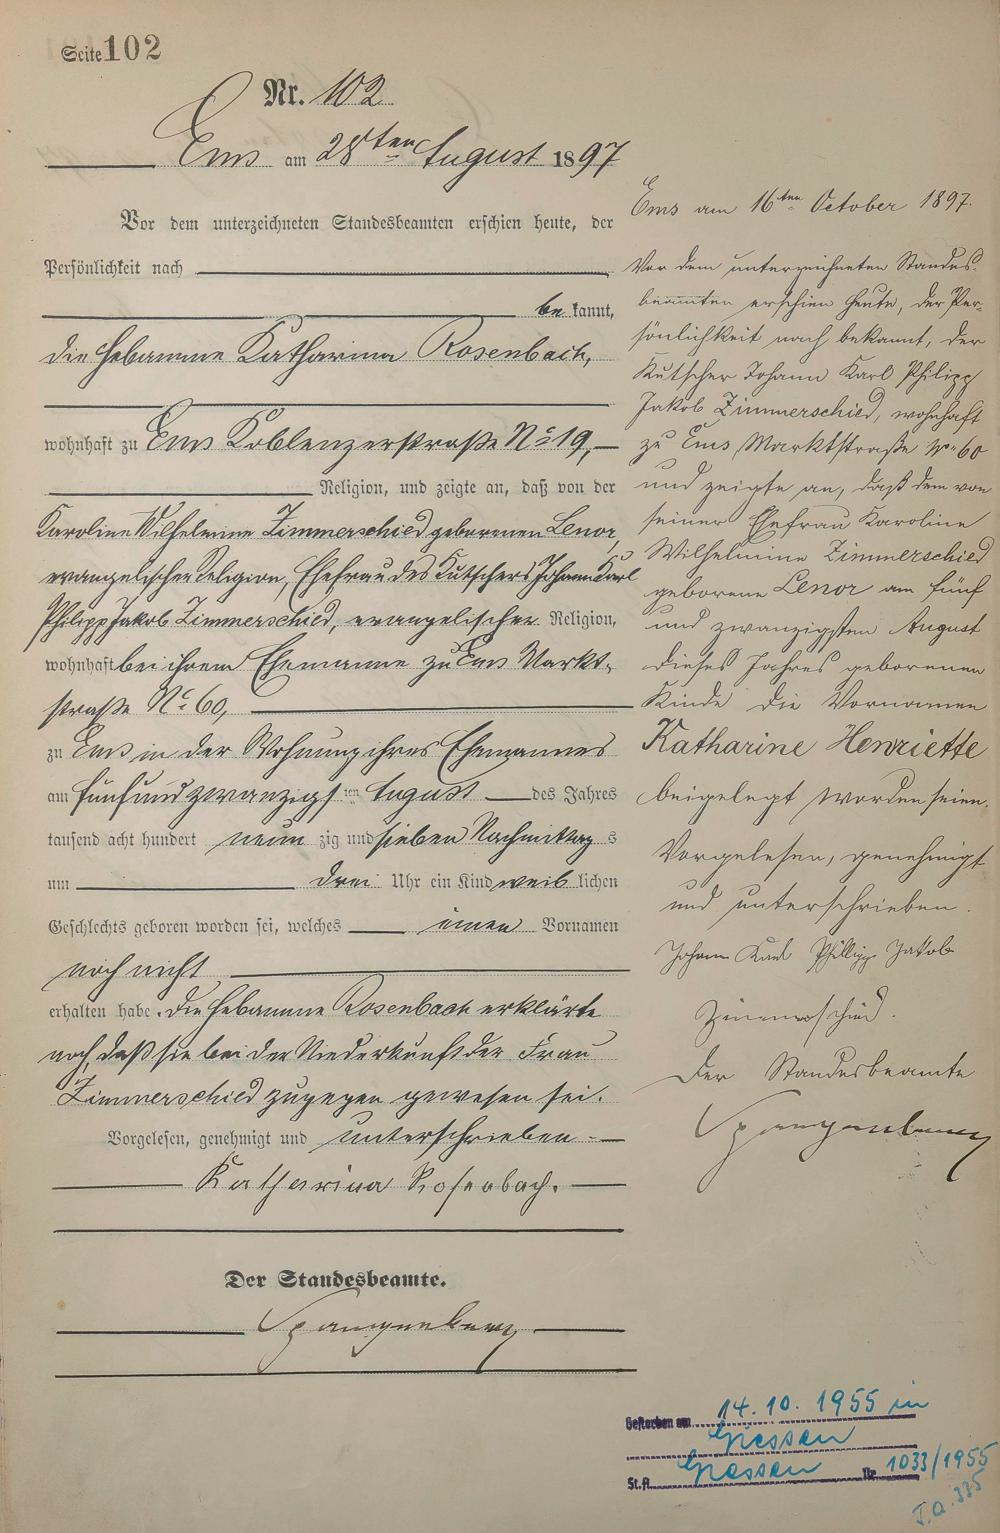 Seite 102
Nr. 102
Ems am 28ten August 1897
Vor dem unterzeichneten Standesbeamten erschien heute, der
Persönlichkeit nach
be kannt,
die Hebamme Katharina Rosenbach,
wohnhaft zu Ems Koblenzerstraße No 19,
Religion, und zeigte an, daß von der
Karoline Wilhelmine Zimmerschied geborenen Lenor,
evangelischer Religion, Ehefrau des Kutschers Johann Karl
Philipp Jakob Zimmerschied, evangelischer Religion,
wohnhaft bei ihrem Ehemanne zu Ems Markt-
straße No 60,
zu Ems in der Wohnung ihres Ehemannes
am fünfundzwanzigsten August des Jahres
tausend acht hundert neun zig und sieben Nachmittags
um drei Uhr ein Kind weiblichen
Geschlechts geboren worden sei, welches einen Vornamen
noch nicht
erhalten habe. Die Hebamme Rosenbach erklärte
noch, daß sie bei der Niederkunft der Frau
Zimmerschied zugegen gewesen sei.
Vorgelesen, genehmigt und unterschrieben.
Katharina Rosenbach.
Der Standesbeamte.
Spangenberg
Ems am 16ten October 1897.
Vor dem unterzeichneten Standes-
beamten erschien heute, der Per-
sönlichkeit nach bekannt, der
Kutscher Johann Karl Philipp
Jakob Zimmerschied, wohnhaft
zu Ems Marktstraße No 60
und zeigte an, daß dem von
seiner Ehefrau Karoline
Wilhelmine Zimmerschied
geborene Lenor am fünf
und zwanzigsten August
dieses Jahres geborenen
Kinde die Vornamen
Katharine Henriette
beigelegt worden seien.
Vorgelesen, genehmigt
und unterschrieben.
Johann Karl Phillipp Jakob
Zimmerschied.
Der Standesbeamte
Spangenberg
Gestorben am 14.10.1955 in
Giessen
St.A. Giessen Nr. 1033/1955